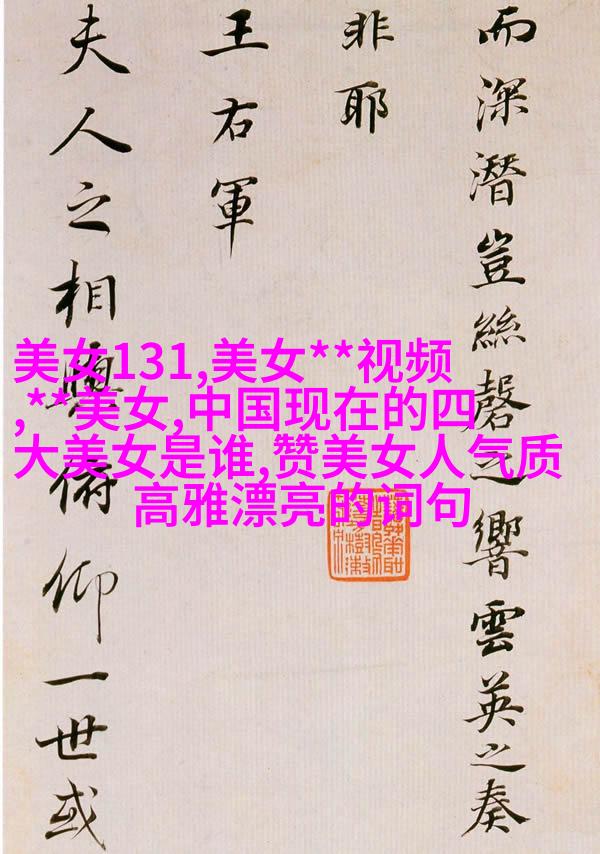 而深潛豈絲磬之響雲英之奏
非耶
王右軍
夫人之相與俯仰一世或
美女131,美女**视频
,**美女,中国现在的四
大美女是谁,赞美女人气质
高雅漂亮的词句